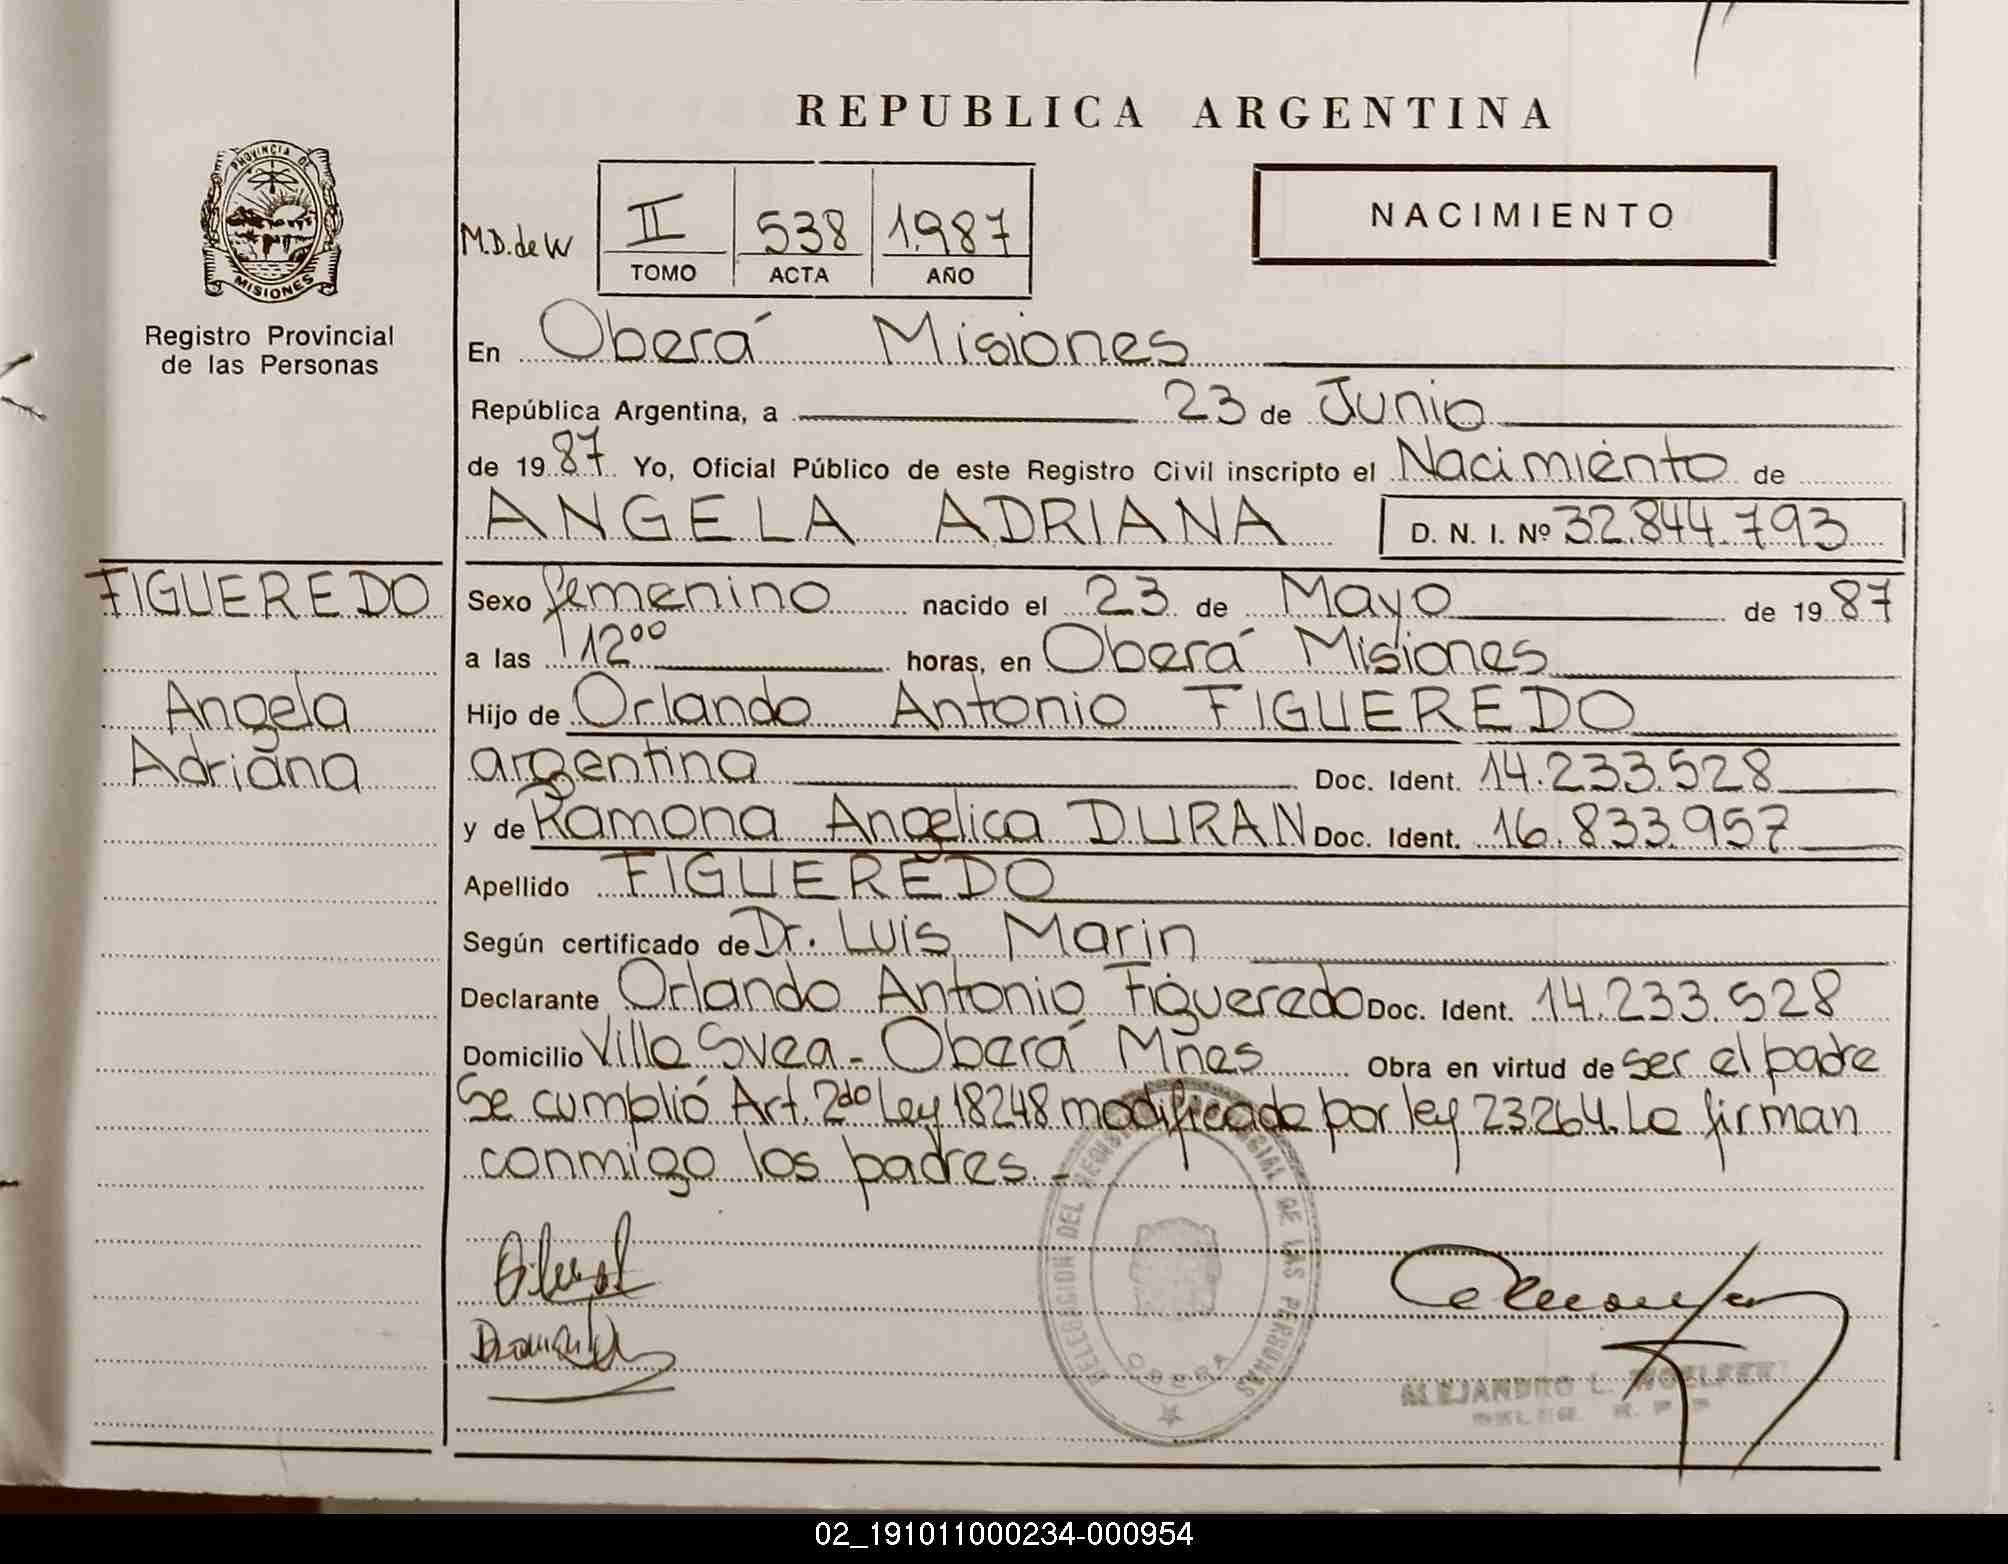 REPUBLICA ARGENTINA
PROVINCIA DE
MISIONES
Registro Provincial
de las Personas
M.D.de W
II 538 1.987
TOMO ACTA AÑO
NACIMIENTO
En Oberá Misiones
República Argentina, a 23 de Junio
de 19 87 Yo, Oficial Público de este Registro Civil inscripto el Nacimiento de
ANGELA ADRIANA D. N. I. Nº 32.844.793
FIGUEREDO
Angela
Adriana
Sexo femenino nacido el 23 de Mayo de 19 87
a las 12⁰⁰ horas, en Oberá Misiones
Hijo de Orlando Antonio FIGUEREDO
argentina Doc. Ident. 14.233.528
y de Ramona Angelica DURAN Doc. Ident. 16.833.957
Apellido FIGUEREDO
Según certificado de Dr. Luis Marin
Declarante Orlando Antonio Figueredo Doc. Ident. 14.233.528
Domicilio Villa Svea - Oberá Mnes Obra en virtud de ser el padre
Se cumplió Art. 2do Ley 18248 modificada por ley 23264. Lo firman
conmigo los padres. -
DELEGACION DEL REGISTRO PROVINCIAL DE LAS PERSONAS
OBERA
ALEJANDRO L. WOELFERT
02_191011000234-000954